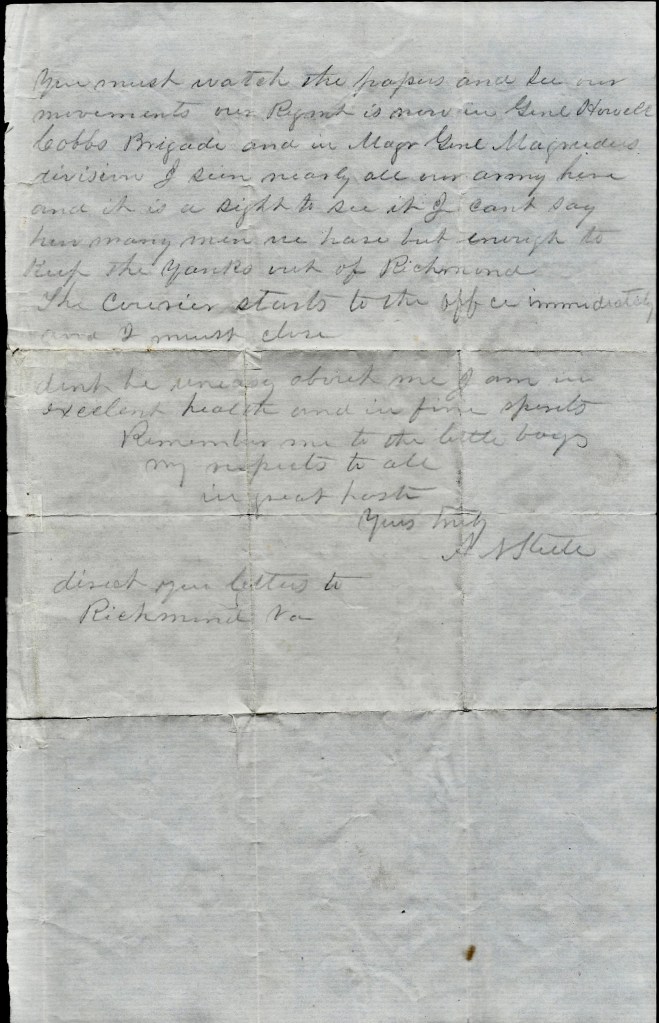 You must watch the papers and see our
movements our Regmt is now in Genl Howell
Cobbs Brigade and in Majr Genl Magruders
division I seen nearly all our army here
and it is a sight to see it I cant say
how many men we have but enough to
Keep the Yanks out of Richmond
The Courier starts to the office immediately
and I must close
dont be uneasy about me I am in
excellent health and in fine spirits
Remember me to the little boys
my respects to all
in great haste
Yours truly
A Steele
direct your letters to
Richmond Va